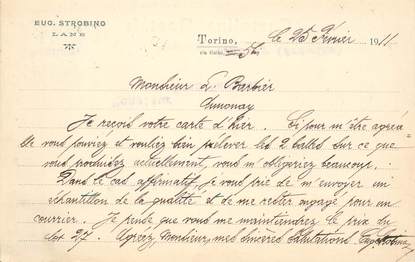 EUG. STROBINO
LANE
Torino, le 25 Février 1911
Monsieur L. Barbier
Annonay
Je reçois votre carte d'hier. Si pour m'être agréa-
ble vous pouviez et vouliez bien prélever les 2 balles sur ce que
vous produisez actuellement, vous m'obligeriez beaucoup.
Dans le cas affirmatif je vous prie de m'envoyer un
échantillon de la qualité et de me rester engagé pour un
courrier. Je pense que vous me maintiendrez le prix du
lot 27. Agréez, Monsieur, mes sincères salutations. Eug. Strobino